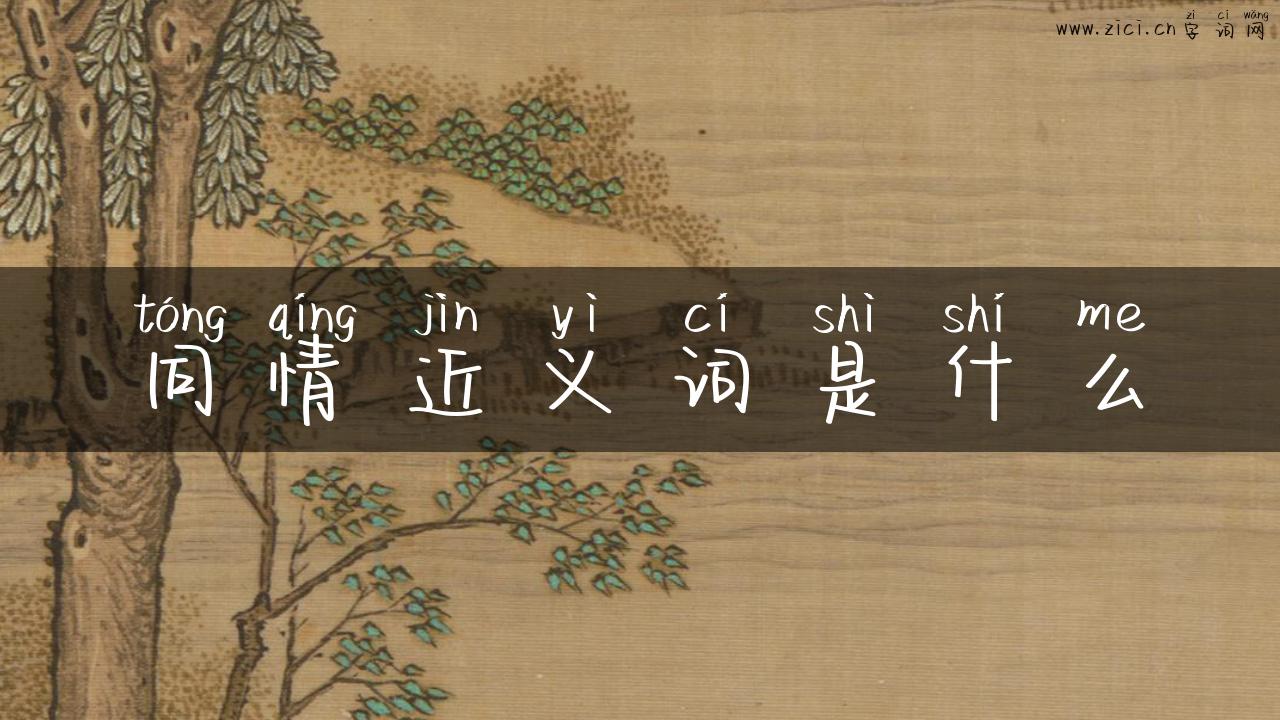 zì cí wǎng
www.zici.cn 字词网
tóng qíng jìn yì cí shì shí me
同情近义词是什么